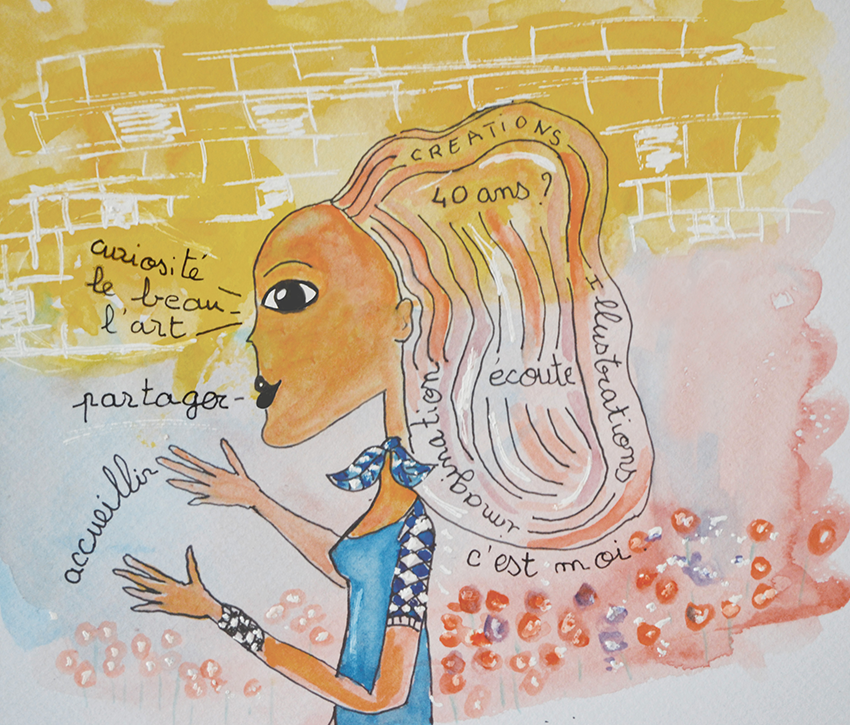 CREATIONS
40 ans ?
curiosité
le beau
l'art
Illustrations
écoute
partager
imagination
accueillir
c'est moi.